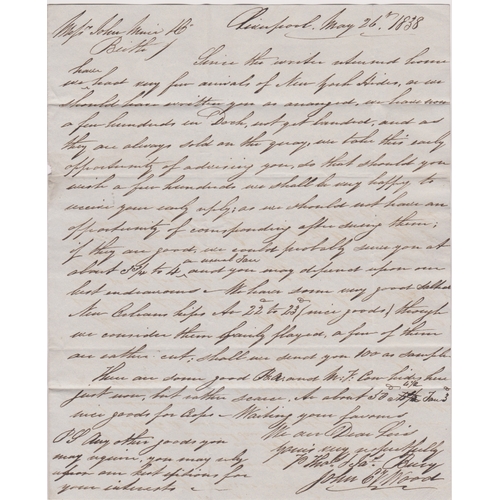 Messrs John Muir & Co
Liverpool. May 26th 1838
Perth
Since the writer returned home
have
we had very few arrivals of New York Hides, or we
should have written you as arranged, we have now
a few hundreds in Dock, not yet landed, and as
they are always sold on the quay, we take this early
opportunity of advising you, so that should you
wish a few hundreds we shall be very happy to
receive your early reply; as we should not have an
opportunity of corresponding after seeing them;
if they are good, we could probably secure you at
a usual Tare
about 3¾ to 4, and you may depend upon our
best endeavours. We have some very good salted
New Orleans kips Av 22 to 23 (nice goods) though
we consider them fairly flayed, a few of them
are rather cut; shall we send you 100 as sample
There are some good BA. and M.V. Cow hides here
just now, but rather scarce. Av about 50
nice goods for Crops. Waiting your favours
We are Dear Sirs
yours very respectfully
John &amp; Wood
PS Any other goods you
may require, you may rely
upon our best attentions for
your interests